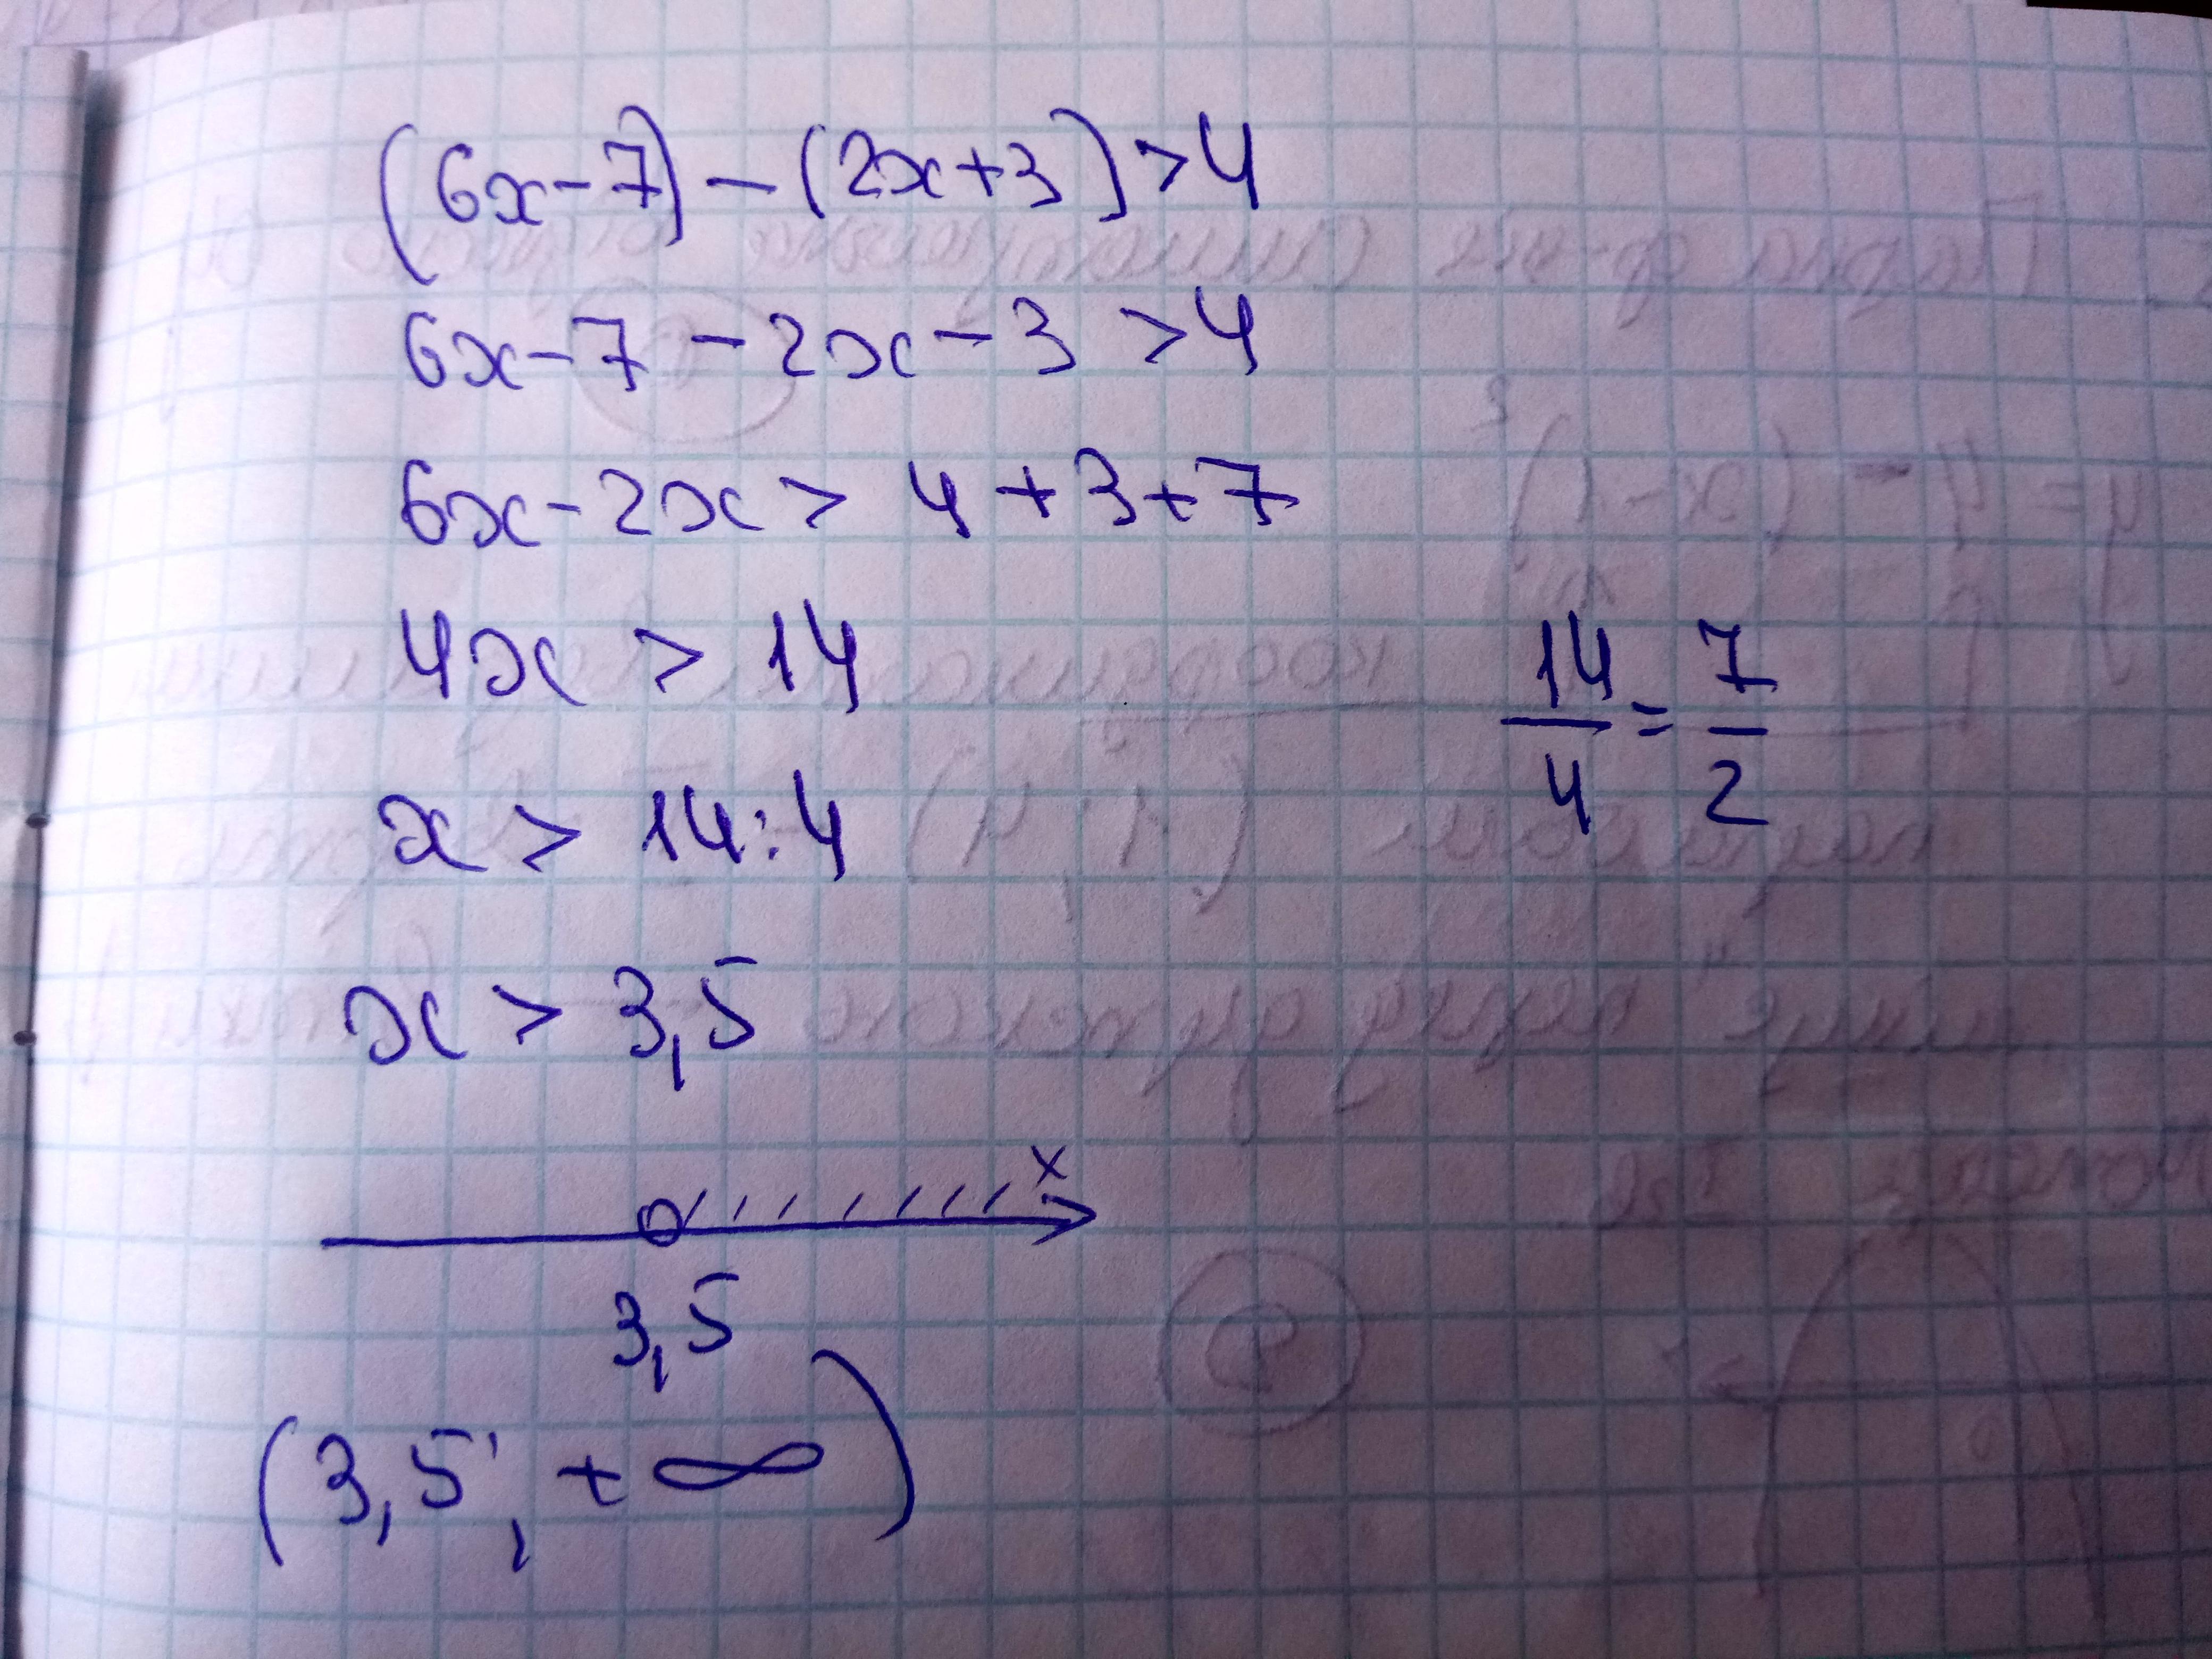 (6x-7)-(2x+3)>4
6x-7-2x-3>4
6x-2x>4+3+7
4x>14
14/4=7/2
x>14:4
x>3,5
x
3,5
(3,5; +∞)